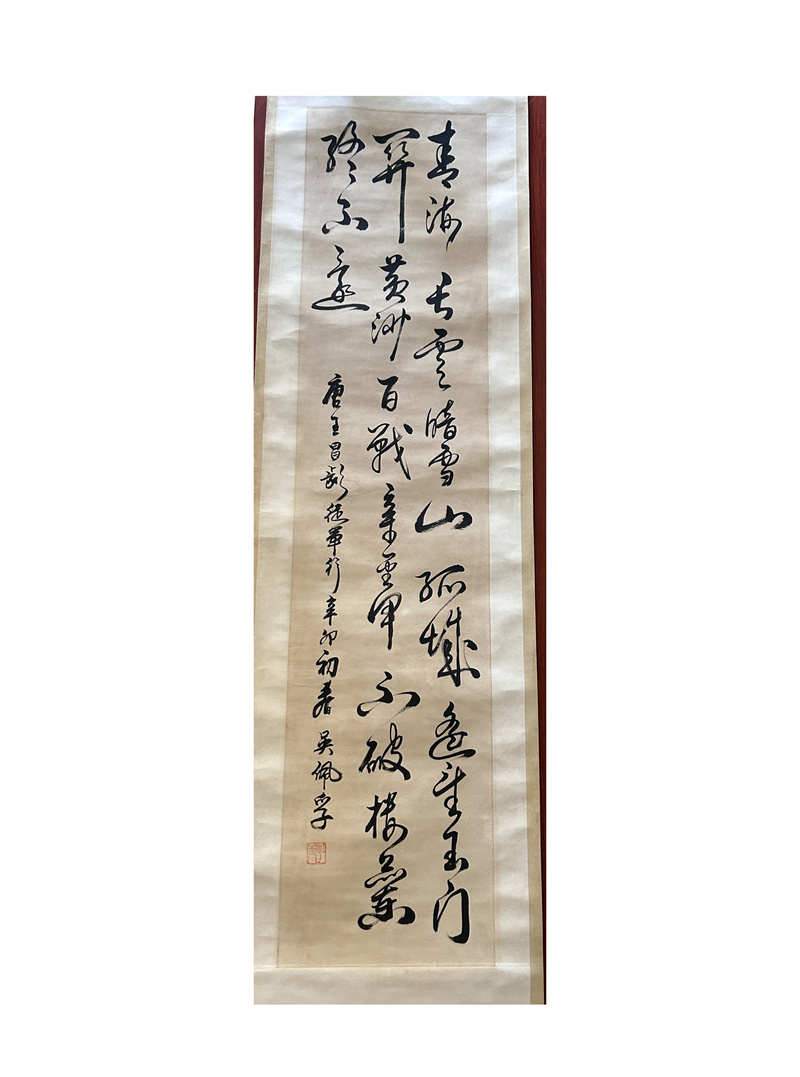 青海長雲暗雪山孤城遙望玉門
關黃沙百戰穿金甲不破樓蘭
終不還
唐王昌齡從軍行辛卯初春 吳佩孚